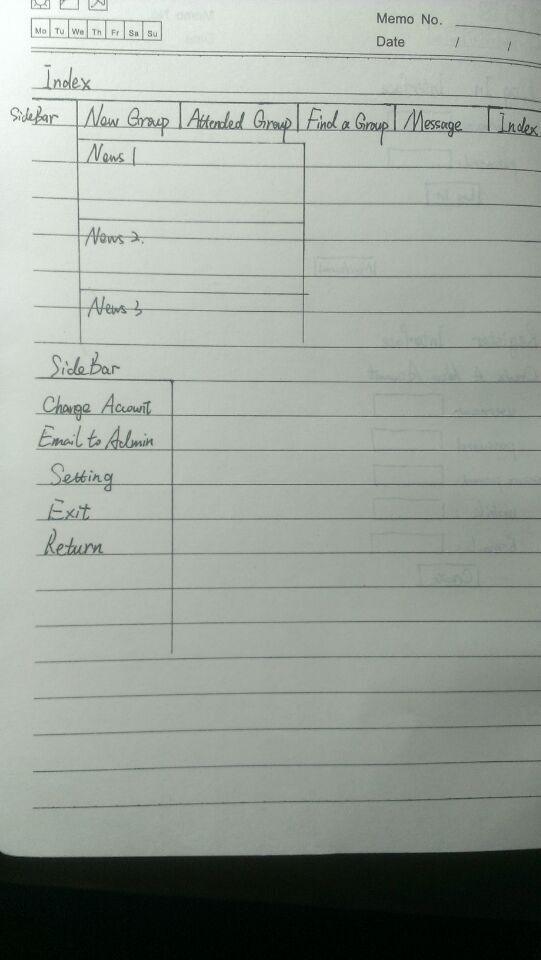 Memo No.
Mo Tu We Th Fr Sa Su
Date / /
Index
SideBar New Group Attended Group Find a Group Message Index
News 1
News 2.
News 3
SideBar
Change Account
Email to Admin
Setting
Exit
Return